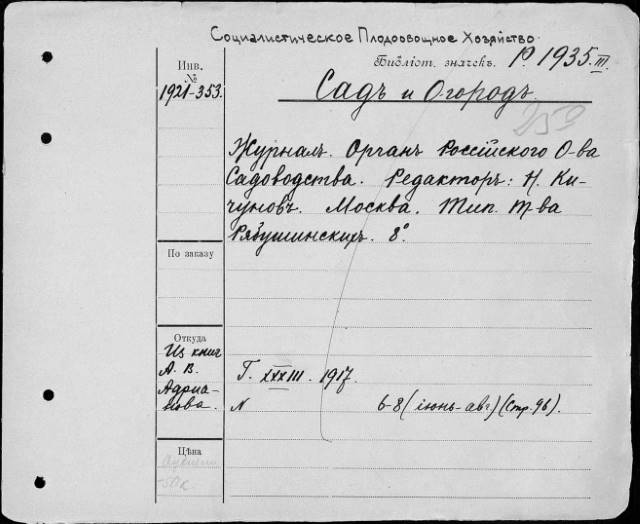 Социалистическое Плодоовощное Хозяйство
Библіот. значекъ. Р. 1935. III.
Инв.
№
1921-353.
Садъ и Огородъ.
259
Журналъ. Органъ Россійского О-ва
Садоводства. Редакторъ: Н. Ки-
чуновъ. Москва. Тип. Т-ва
Рябушинскихъ. 8°.
По заказу
Откуда
Из книг
А. В.
Адриа-
нова.
Г. XXXIII. 1917.
N 6-8 (іюнь-авг) (Стр. 96).
Цѣна
50к